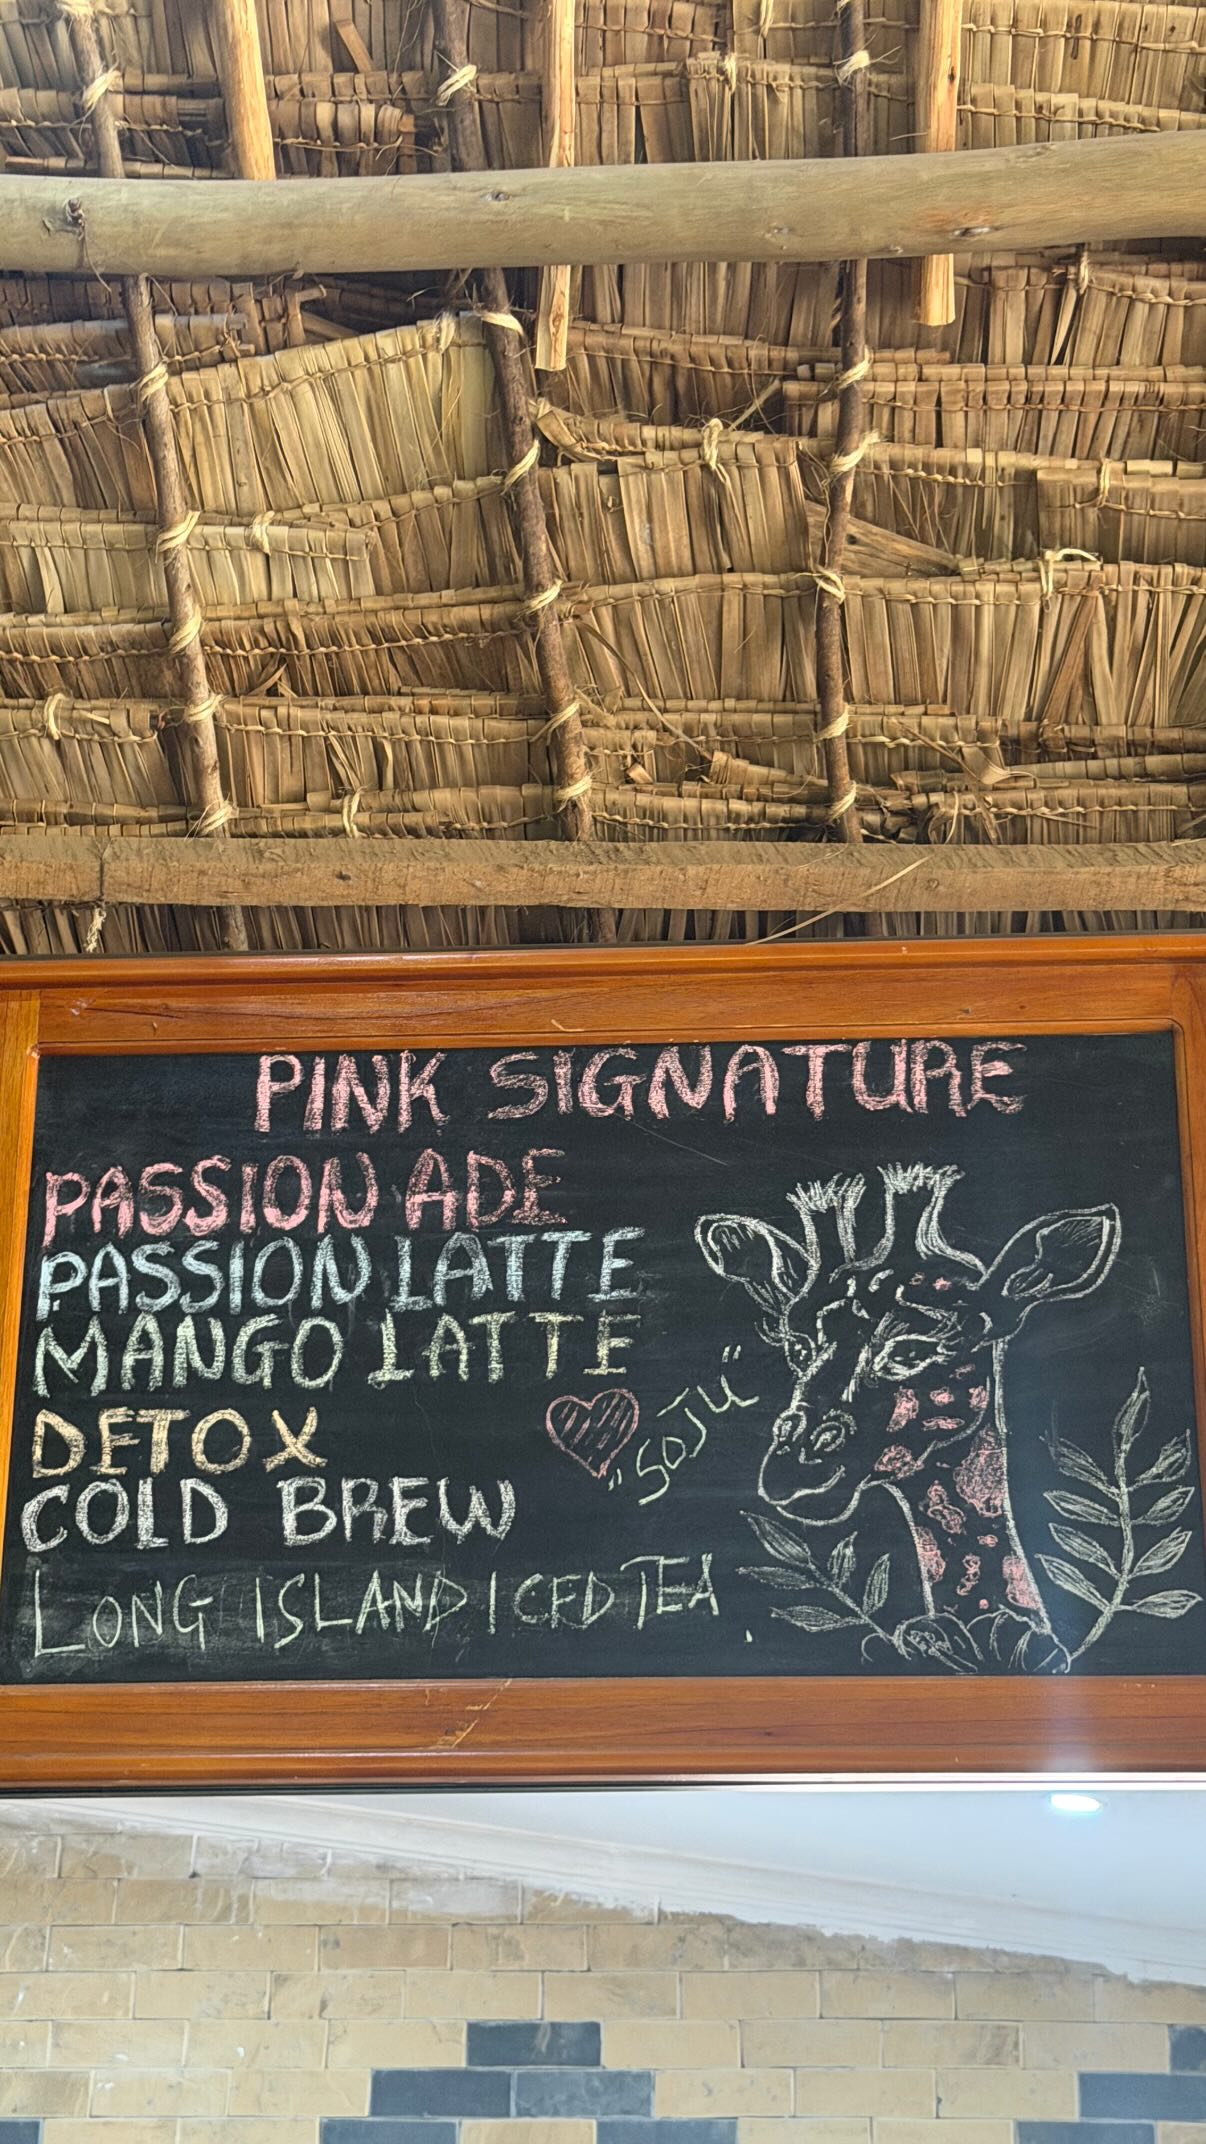 PINK SIGNATURE
PASSION ADE
PASSION LATTE
MANGO LATTE
DETOX
"SOJU"
COLD BREW
LONG ISLAND ICED TEA